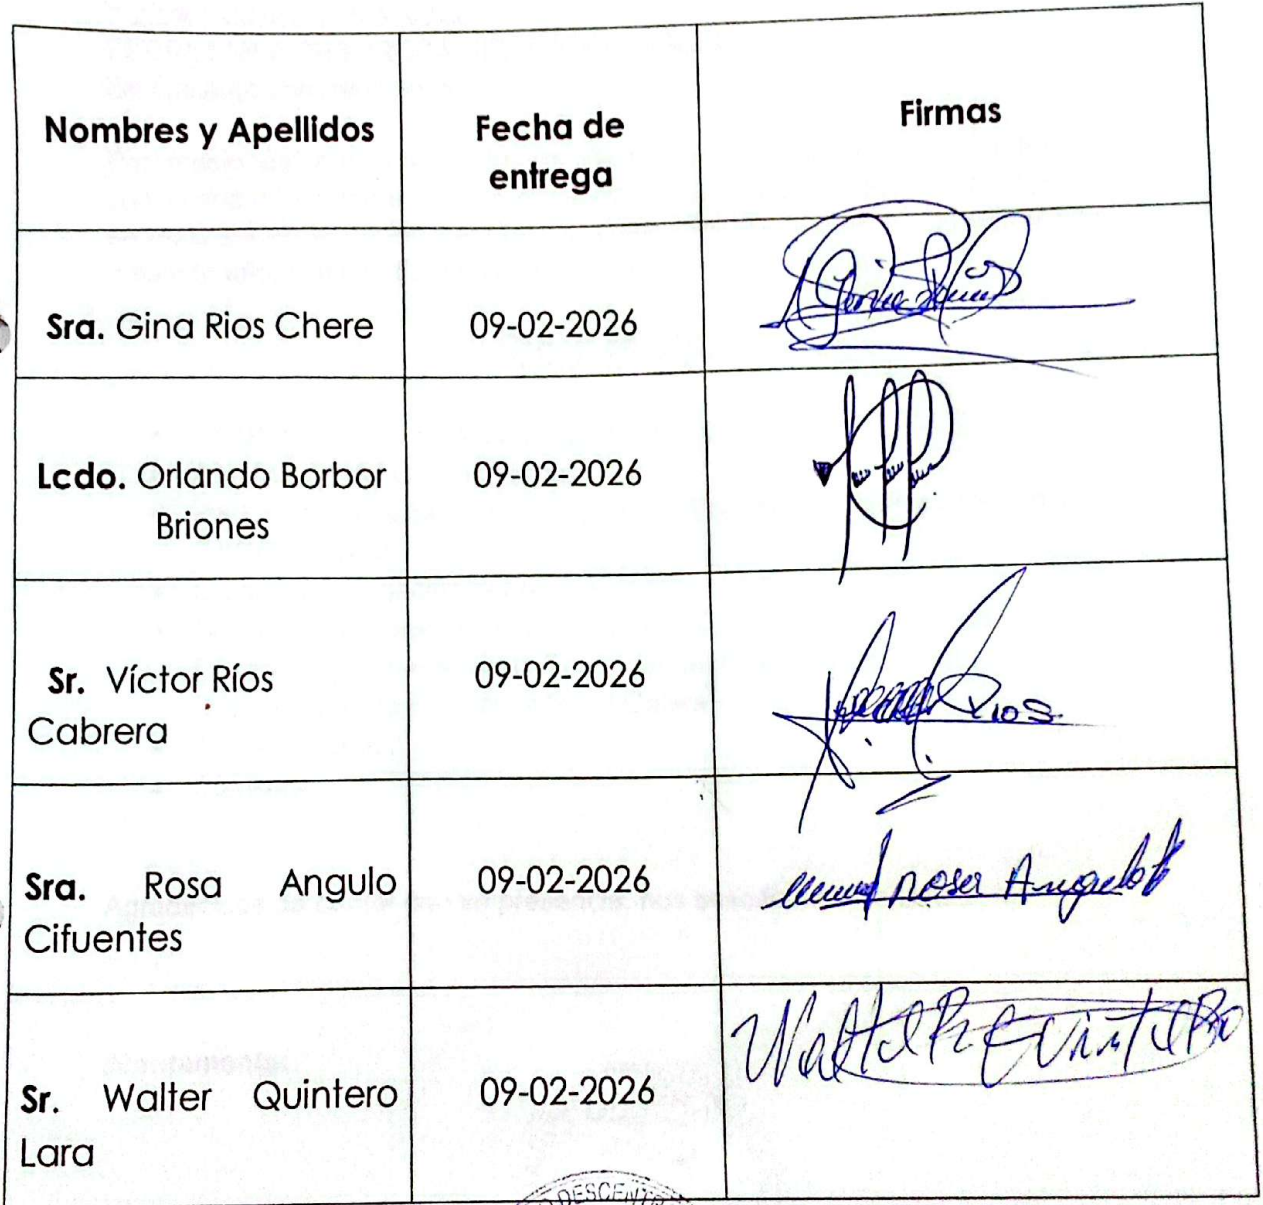 Nombres y Apellidos
Fecha de
entrega
Firmas
Sra. Gina Rios Chere
09-02-2026
Lcdo. Orlando Borbor
Briones
09-02-2026
Sr. Víctor Ríos
Cabrera
09-02-2026
Rios
Sra. Rosa Angulo
Cifuentes
09-02-2026
rosa Angulo
Sr. Walter Quintero
Lara
09-02-2026